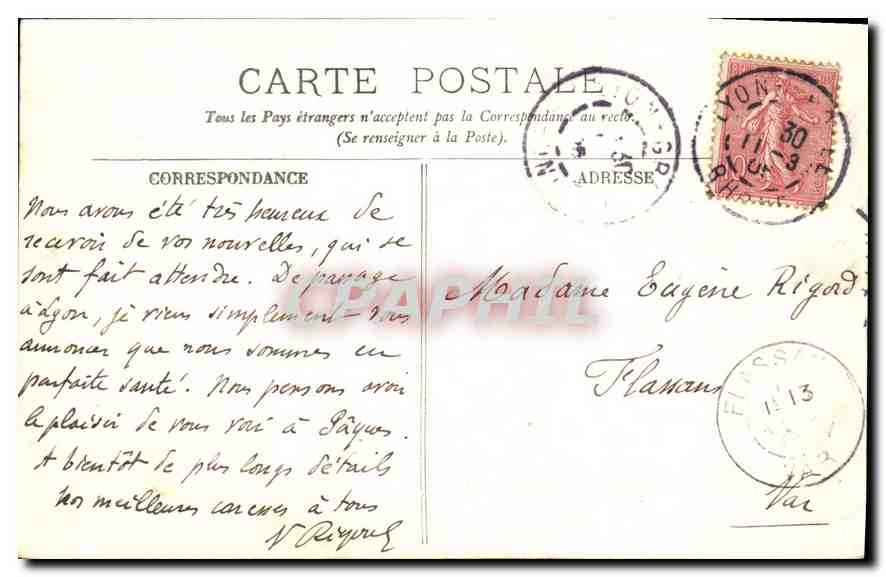 CARTE POSTALE
Tous les Pays étrangers n'acceptent pas la Correspondance au recto.
(Se renseigner à la Poste).
CORRESPONDANCE
ADRESSE
Nous avons été très heureux de
recevoir de vos nouvelles, qui se
sont fait attendre. De passage
à Lyon, je viens simplement vous
annoncer que nous sommes en
parfaite santé. Nous pensons avoir
le plaisir de vous voir à Pâques.
A bientôt de plus longs détails
Nos meilleures caresses à tous
Madame Eugène Rigord
Flassans
Var
CPAPHIL
LYON
30
3
FLASSANS
13
VAR